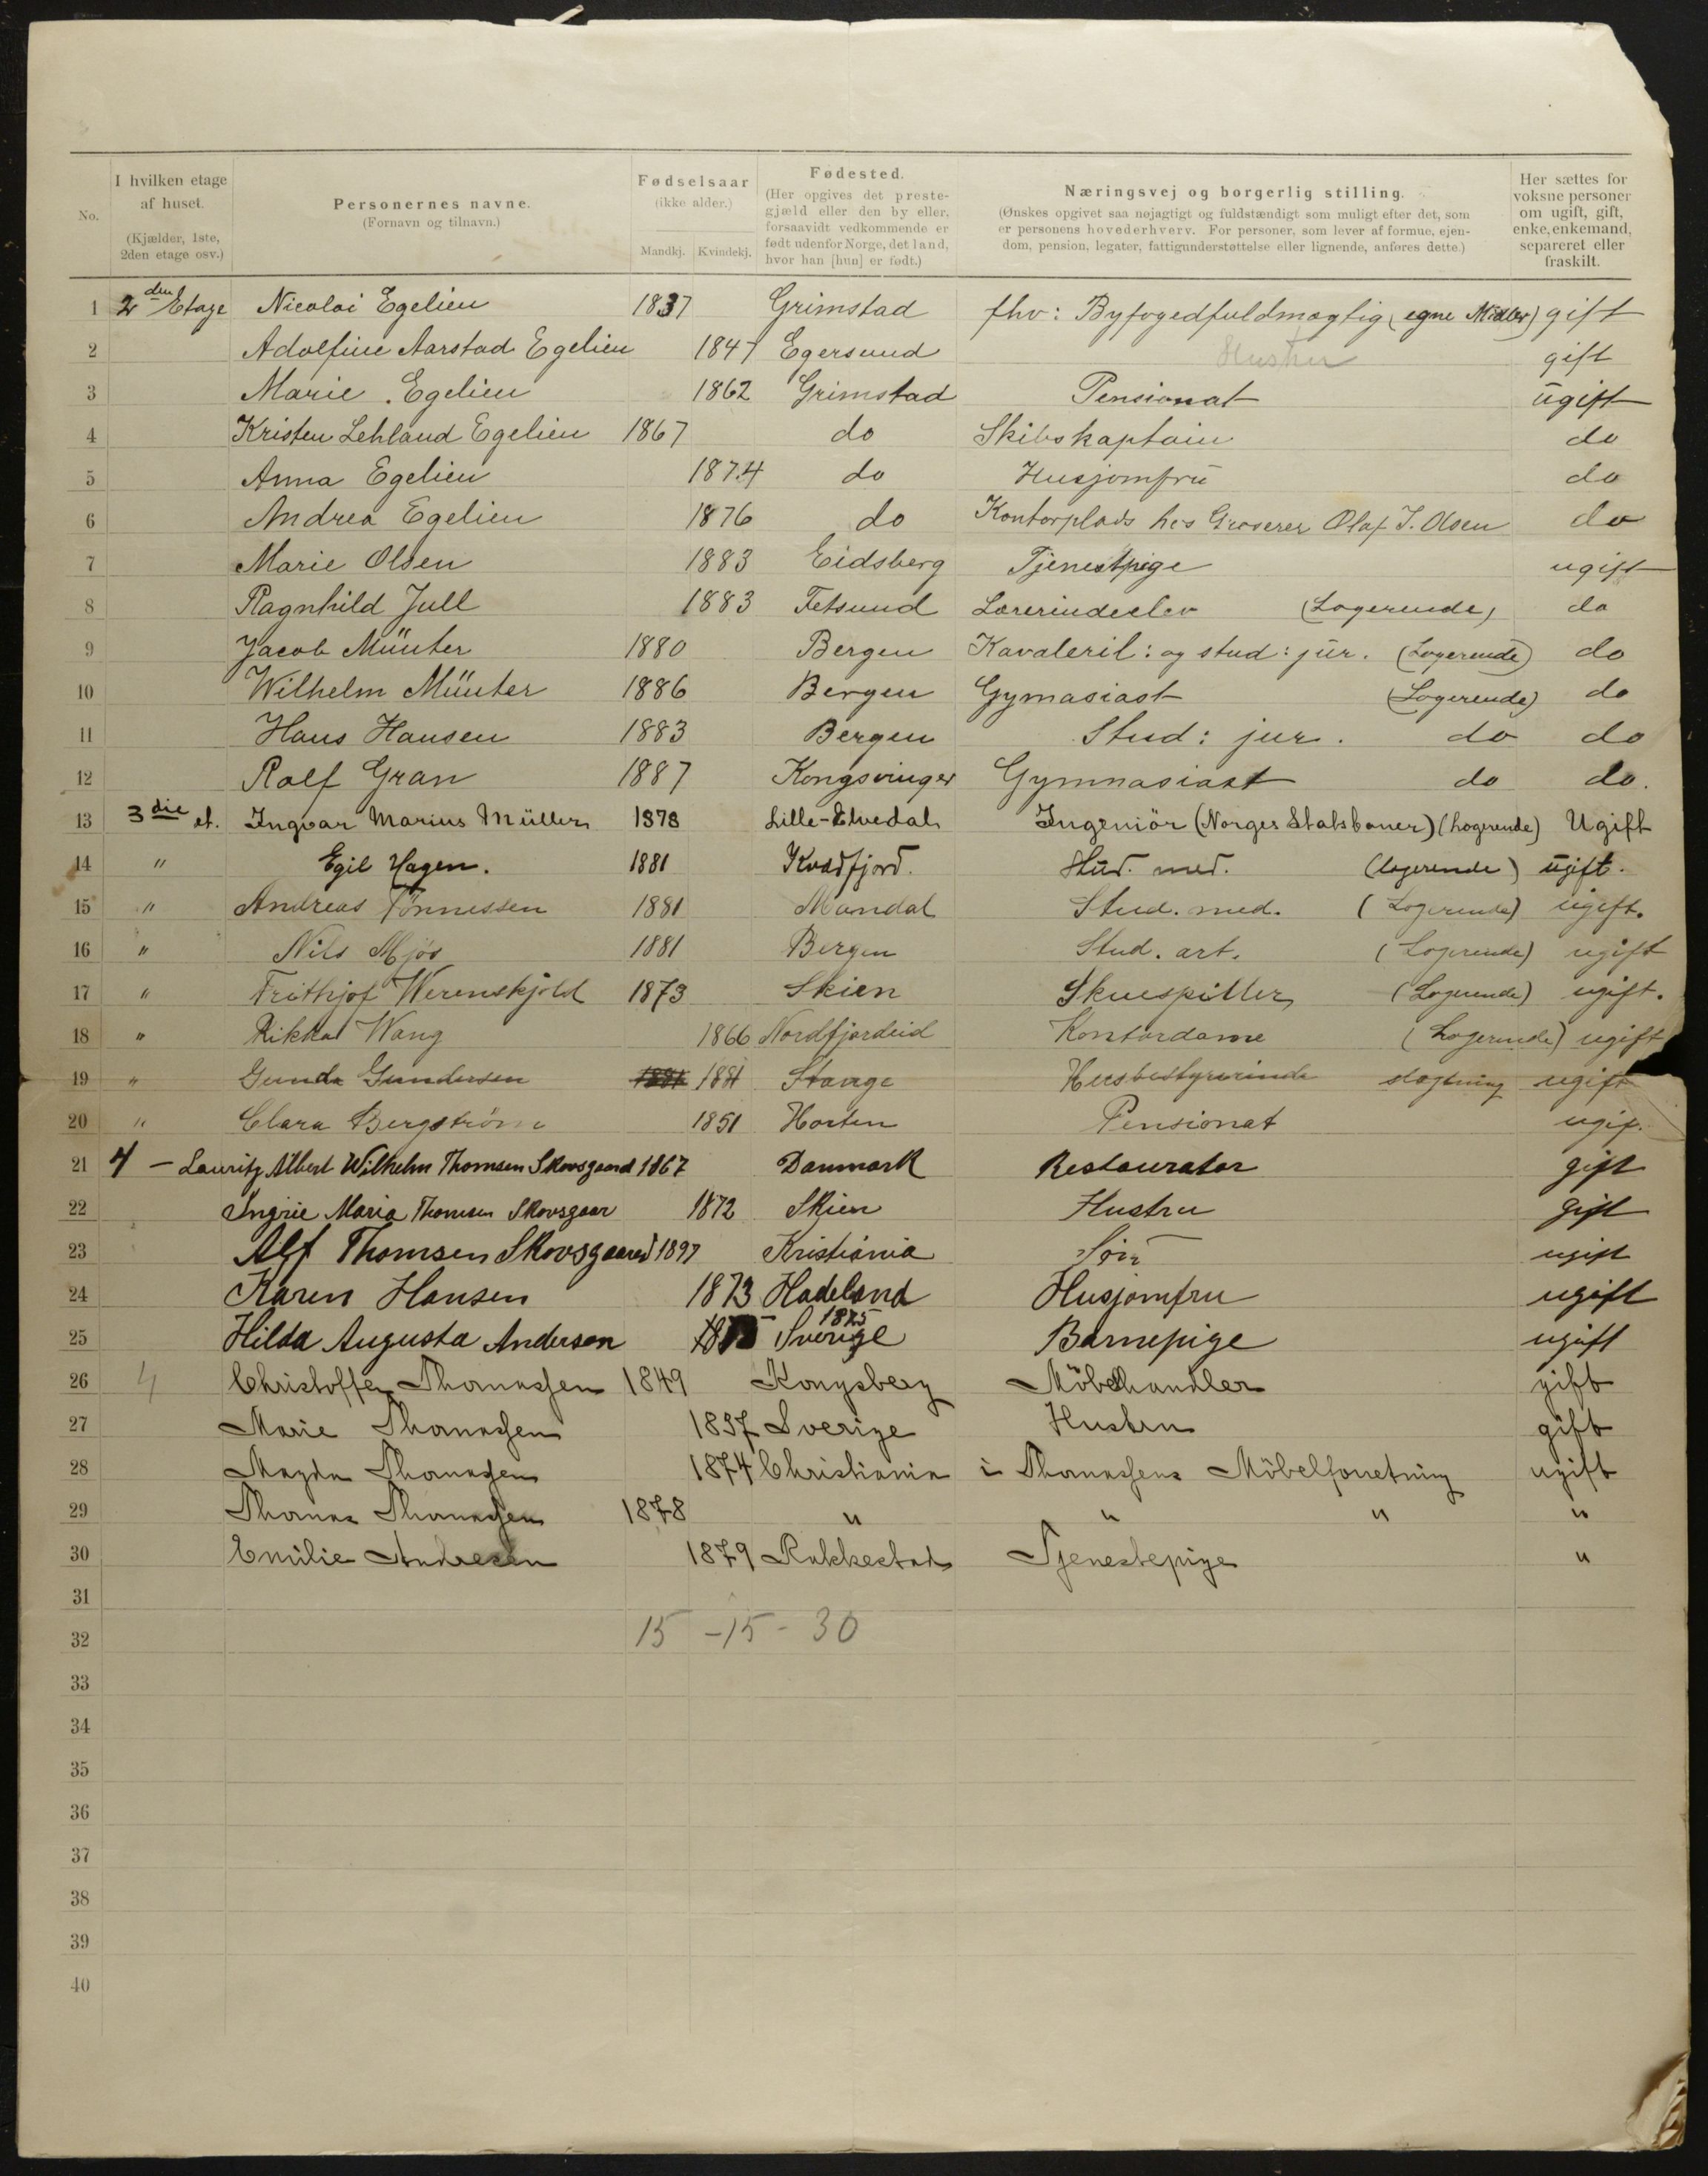 No.
I hvilken etage af huset. (Kjælder, 1ste, 2den etage osv.)
Personernes navne. (Fornavn og tilnavn.)
Fødselsaar (ikke alder.)
Mandkj. Kvindekj.
Fødested. (Her opgives det prestegjæld eller den by eller, forsaavidt vedkommende er født udenfor Norge, det land, hvor han [hun] er født.)
Næringsvej og borgerlig stilling. (Ønskes opgivet saa nøjagtigt og fuldstændigt som muligt efter det, som er personens hovederhverv. For personer, som lever af formue, ejendom, pension, legater, fattigunderstøttelse eller lignende, anføres dette.)
Her sættes for voksne personer om ugift, gift, enke, enkemand, separeret eller fraskilt.
1 2den Etage Nicolai Egelien 1837 Grimstad fhv: Byfogedfuldmægtig (egne Midler) gift
2 Adolfine Aarstad Egelien 1847 Egersund Hustru gift
3 Marie Egelien 1862 Grimstad Pensionat ugift
4 Kristen Lehland Egelien 1867 do Skibskaptain do
5 Anna Egelien 1874 do Husjomfru do
6 Andrea Egelien 1876 do Kontorplads hos Groserer Olaf J. Olsen do
7 Marie Olsen 1883 Eidsberg Tjenestpige ugift
8 Ragnhild Jull 1883 Fetsund Lærerindeelev (Logerende) do
9 Jacob Münter 1880 Bergen Kavaleril: og stud: jur. (Logerende) do
10 Wilhelm Münter 1886 Bergen Gymasiast (Logerende) do
11 Hans Hansen 1883 Bergen Stud: jur. do do
12 Rolf Gran 1887 Kongsvinger Gymnasiast do do.
13 3die et. Ingvar Marius Müller 1878 Lille-Elvedal Ingeniør (Norges Statsbaner) (Logerende) Ugift
14 " Egil Hagen. 1881 Kvædfjord. Stud. med. (logerende) ugift.
15 " Andreas Tönnessen 1881 Mandal Stud. med. (Logerende) ugift.
16 " Nils Mjøs 1881 Bergen Stud. art. (Logerende) ugift
17 " Frithjof Werenskjold 1873 Skien Skuespiller (Logerende) ugift.
18 " Rikka Wang 1866 Nordfjordeid Kontordame (Logerende) ugift
19 " Gunda Gundersen 1881 Stange Husbestyrerinde slægtning ugift
20 " Clara Bergström 1851 Horten Pensionat ugif.
21 4 – Lauritz Albert Wilhelm Thomsen Skovsgaard 1867 Danmark Restaurator gift
22 Ingrie Maria Thomsen Skovsgaar 1872 Skien Hustru gift
23 Alf Thomsen Skovsgaard 1897 Kristiania Søn ugift
24 Karen Hansen 1873 Hadeland Husjomfru ugift
25 Hilda Augusta Andersen 1875 Sverige Barnepige ugift
26 4 Christoffer Thomassen 1849 Kongsberg Møbelhandler gift
27 Marie Thomassen 1837 Sverige Hustru gift
28 Magda Thomassen 1874 Christiania i Thomassens Møbelforretning ugift
29 Thomas Thomassen 1878 " " " "
30 Emilie Andresen 1879 Rakkestad Tjenestepige "
31
32 15 – 15 – 30
33
34
35
36
37
38
39
40